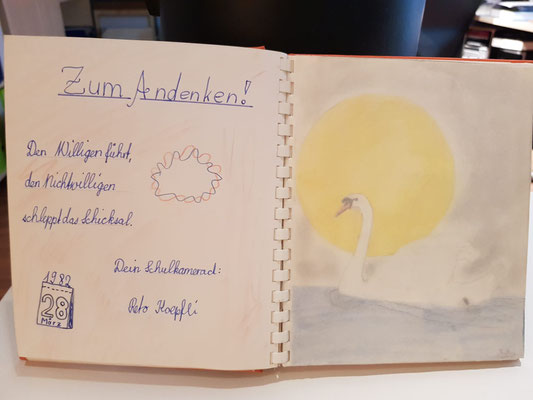 Zum Andenken!
Den Willigen führt,
den Nichtwilligen
schleppt das Schicksal.
Dein Schulkamerad:
Reto Koepfli
1982
28
März